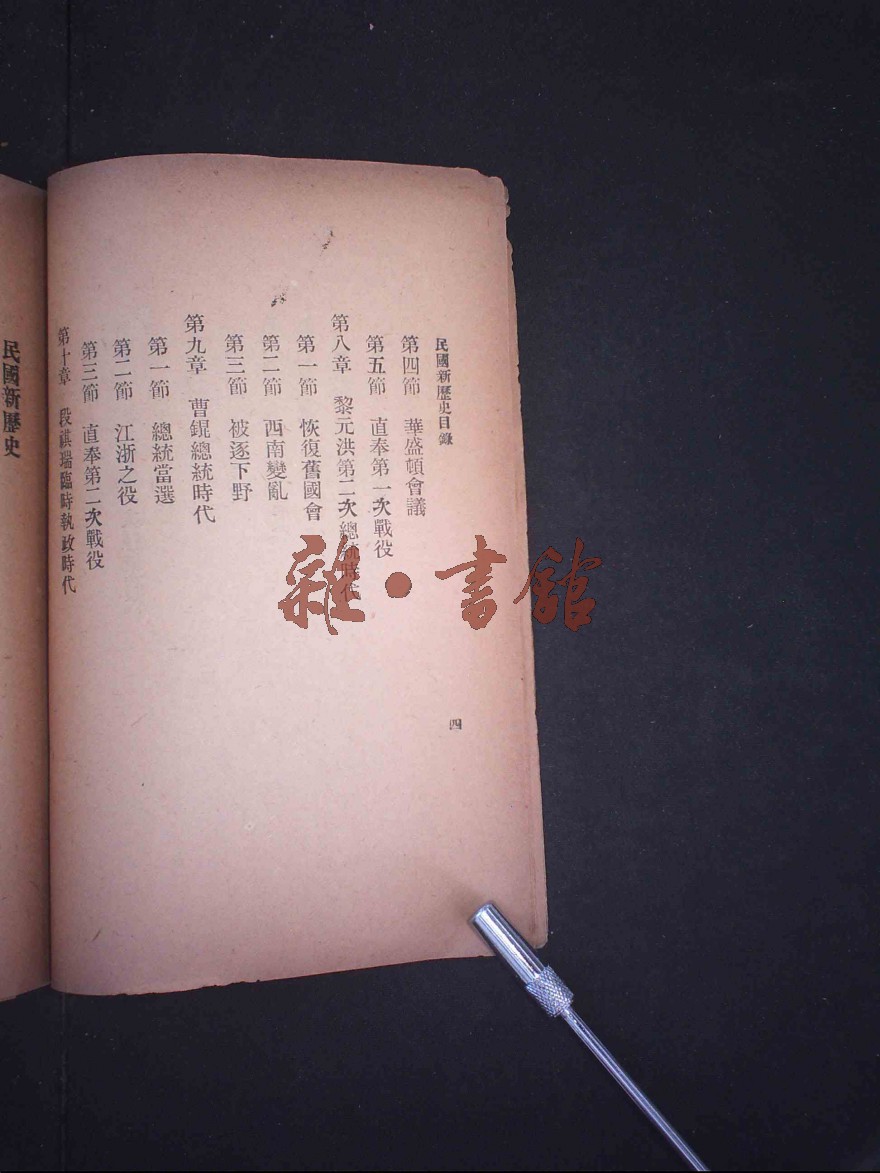 民國新歷史目錄
第四節 華盛頓會議
第五節 直奉第一次戰役
第八章 黎元洪第二次總統時代
第一節 恢復舊國會
第二節 西南變亂
第三節 被逐下野
第九章 曹錕總統時代
第一節 總統當選
第二節 江浙之役
第三節 直奉第二次戰役
第十章 段祺瑞臨時執政時代
四
民國新歷史
雜·書館